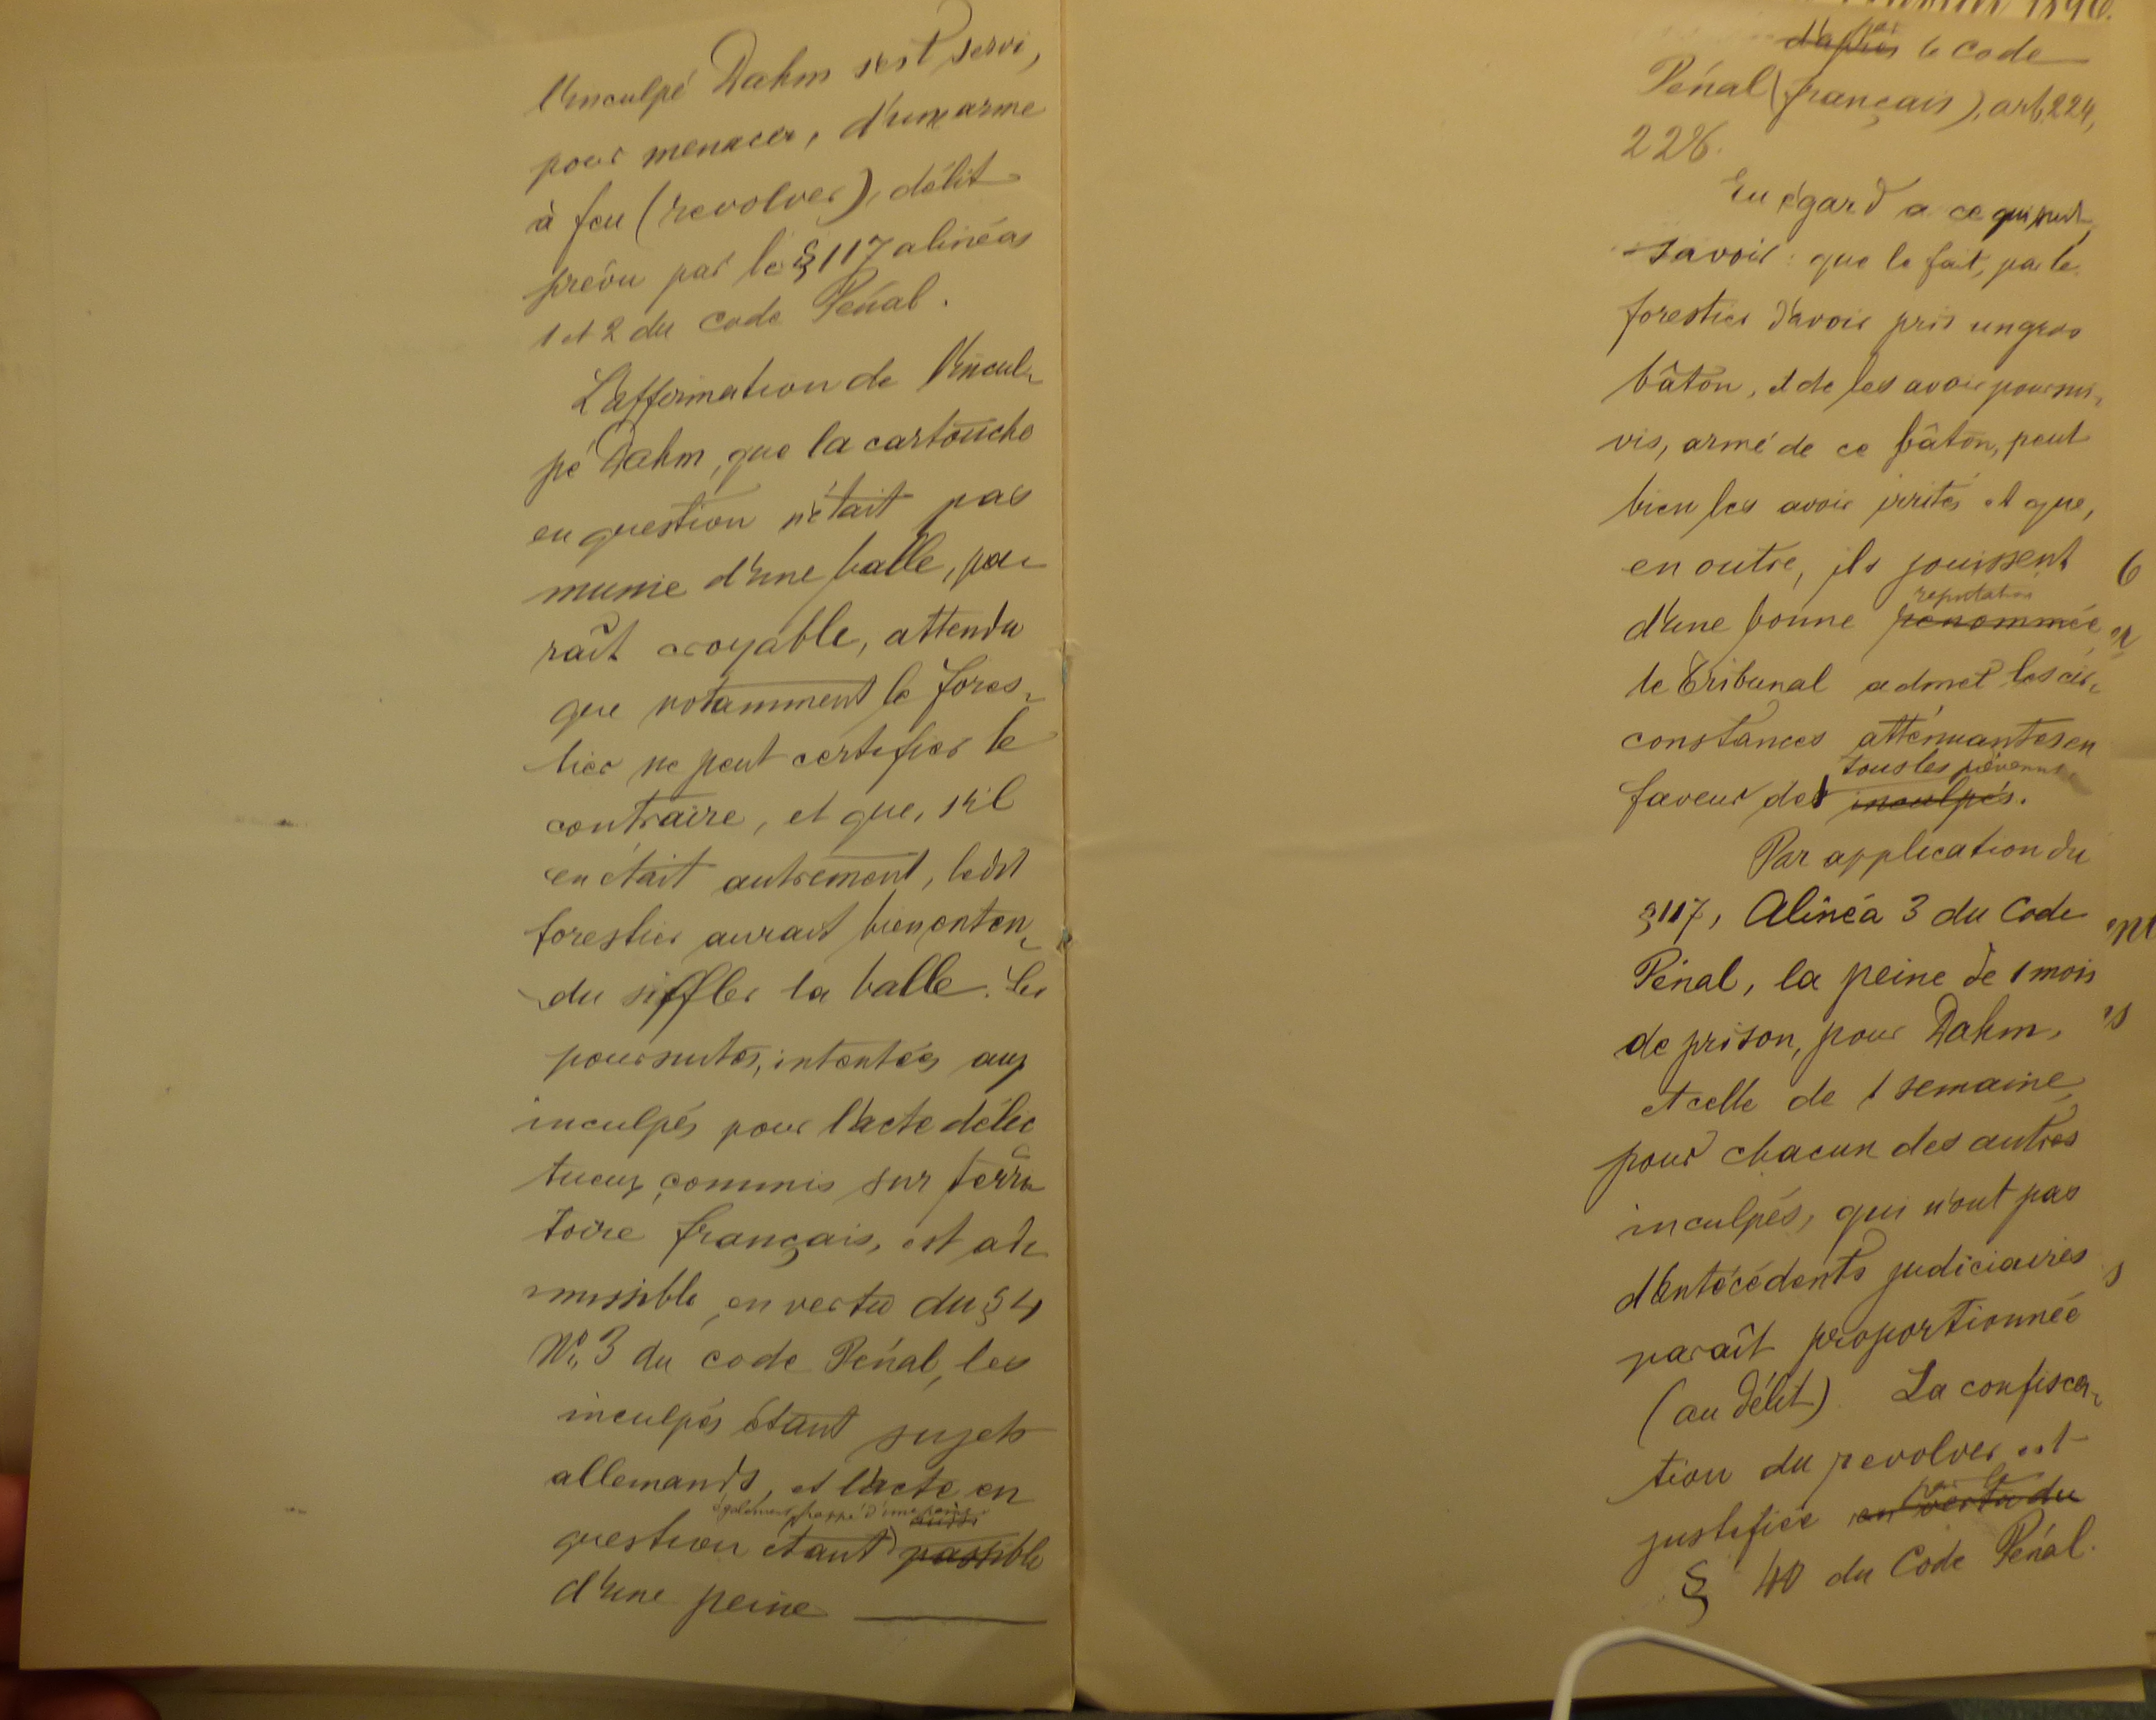 l'inculpé Dahm s'est servi,
pour menacer, d'une arme
à feu (revolver), délit
prévu par le § 117 alinéas
1 et 2 du Code Pénal.
L'affirmation de l'incul-
pé Dahm, que la cartouche
en question n'était pas
munie d'une balle, pa-
raît croyable, attendu
que notamment le fores-
tier ne peut certifier le
contraire, et que, s'il
en était autrement, ledit
forestier aurait bien enten-
du siffler la balle. Les
poursuites, intentées aux
inculpés pour l'acte délic
tueux commis sur terri-
toire français, est ad-
missible, en vertu du § 4
No. 3 du code Pénal, les
inculpés étant sujets
allemands, et l'acte en
également frappé d'une peine aussi
question étant passible
d'une peine
1896.
par
d'après le code
Pénal (français), art. 224,
228.
Eu égard a ce qui suit,
savoir : que le fait, par le
forestier d'avoir pris un gros
bâton, et de les avoir poursui-
vis, armé de ce bâton, peut
bien les avoir irrités et que,
en outre, ils jouissent
reputation
d'une bonne renommée,
le Tribunal admet les cir-
constances atténuantes en
tous les prévenus
faveur des inculpés.
Par application du
§ 117, Alinéa 3 du Code
Pénal, la peine de 1 mois
de prison, pour Dahm,
et celle de 1 semaine,
pour chacun des autres
inculpés, qui n'ont pas
d'antécédents judiciaires
paraît proportionnée
(au délit). La confisca-
tion du revolver est
par le
justifiée en vertu du
§ 40 du Code Pénal.